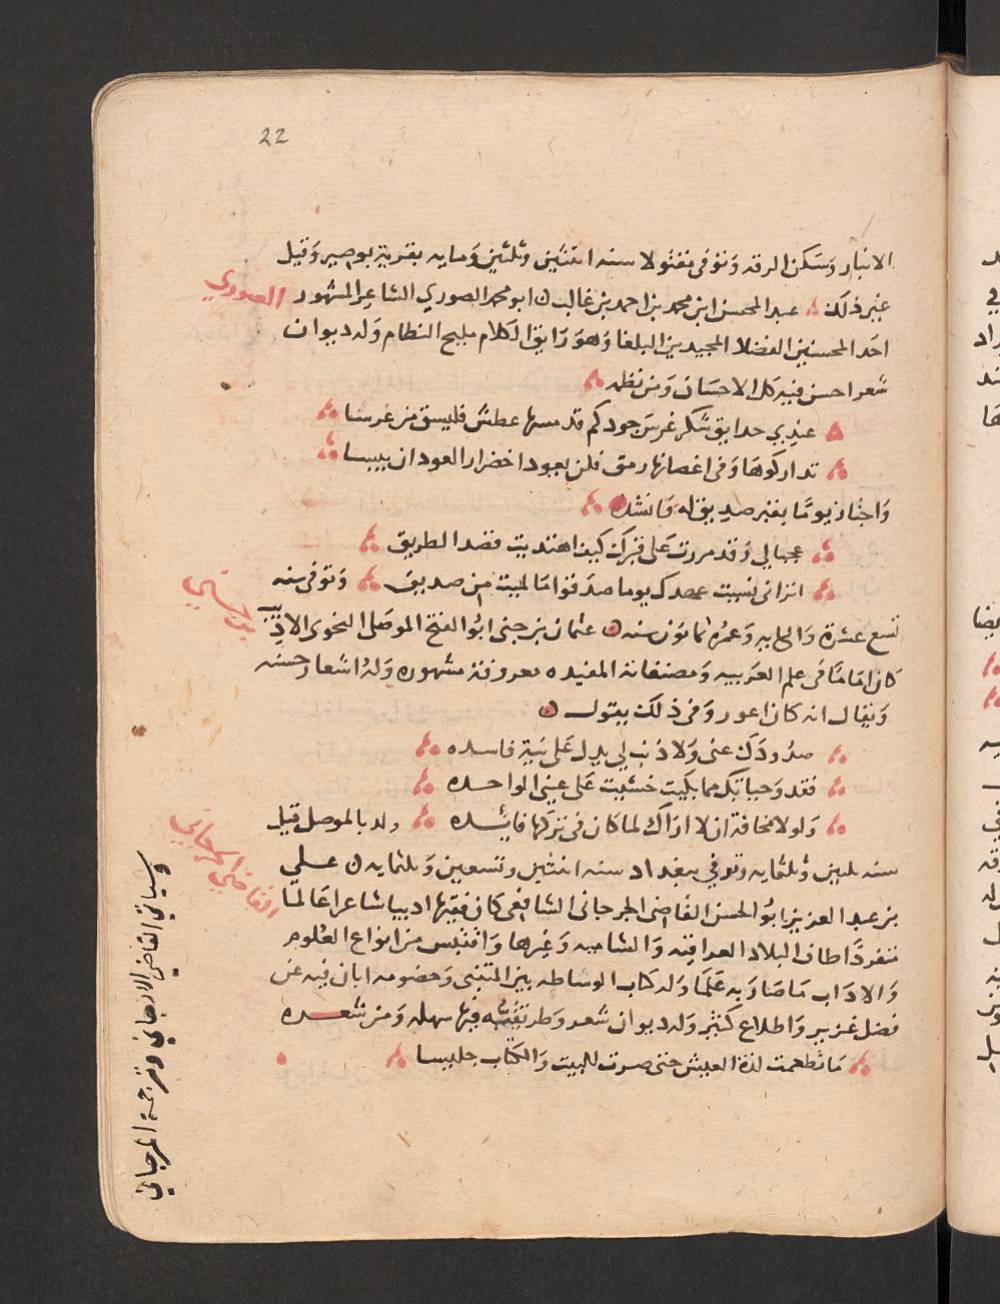 22
الانبار وسكن الرقه وتوفي مقتولا سنه اثنتين وثلثين ومايه بقرية بوصير وقيل
غير ذلك عبد المحسن ابن محمد بن احمد بن غالب ابو محمد الصوري الشاعر المشهور
الصوري
احد المحسنين الفضلا المجيدين البلغا وهو رايق الكلام مليح النظام وله ديوان
شعر احسن فيه كل الاحسان ومن نظمه
عندي حدايق شكر غرس جودكم قد مسها عطش فليسق من غرسا
تداركوها وفي اغصانها رمق فلن يعود اخضرار العود ان يبسا
واجتاز يوما بقبر صديق له فانشد
عجبا لي وقد مررت على قبرك كيف اهتديت قصد الطريق
اتراني نسيت عهدك يوما صدقوا ما لميت من صديق وتوفي سنه
تسع عشرة واربعمايه وعمره ثمانون سنه عثمان بن جني ابو الفتح الموصلي النحوي الاديب
ابن جني
كان اماما في علم العربيه ومصنفاته المفيده معروفة مشهوره وله اشعار حسنه
ويقال انه كان اعور وفي ذلك يقول
صدودك عني ولا ذنب لي يدل على نية فاسده
فقد وحياتك مما بكيت خشيت على عيني الواحده
ولولا مخافة ان لا اراك لما كان في تركها فايده ولد بالموصل قبل
سنه ثلثين وثلثمايه وتوفي ببغداد سنه اثنتين وتسعين وثلثمايه علي
القاضي الجرجاني
بن عبد العزيز ابو الحسن القاضي الجرجاني الشافعي كان فقيها اديبا شاعرا عالما
متفردا طاف البلاد العراقيه والشاميه وغيرها واقتبس من انواع العلوم
والاداب ما صار به علما وله كتاب الوساطه بين المتنبي وخصومه ابان فيه عن
فضل غزير واطلاع كثير وله ديوان شعر وطريقته فيها سهله ومن شعره
ما تطعمت لذة العيش حتى صرت للبيت والكتاب جليسا
وسياتي القاضي الارجاني وترجمة الجرجاني